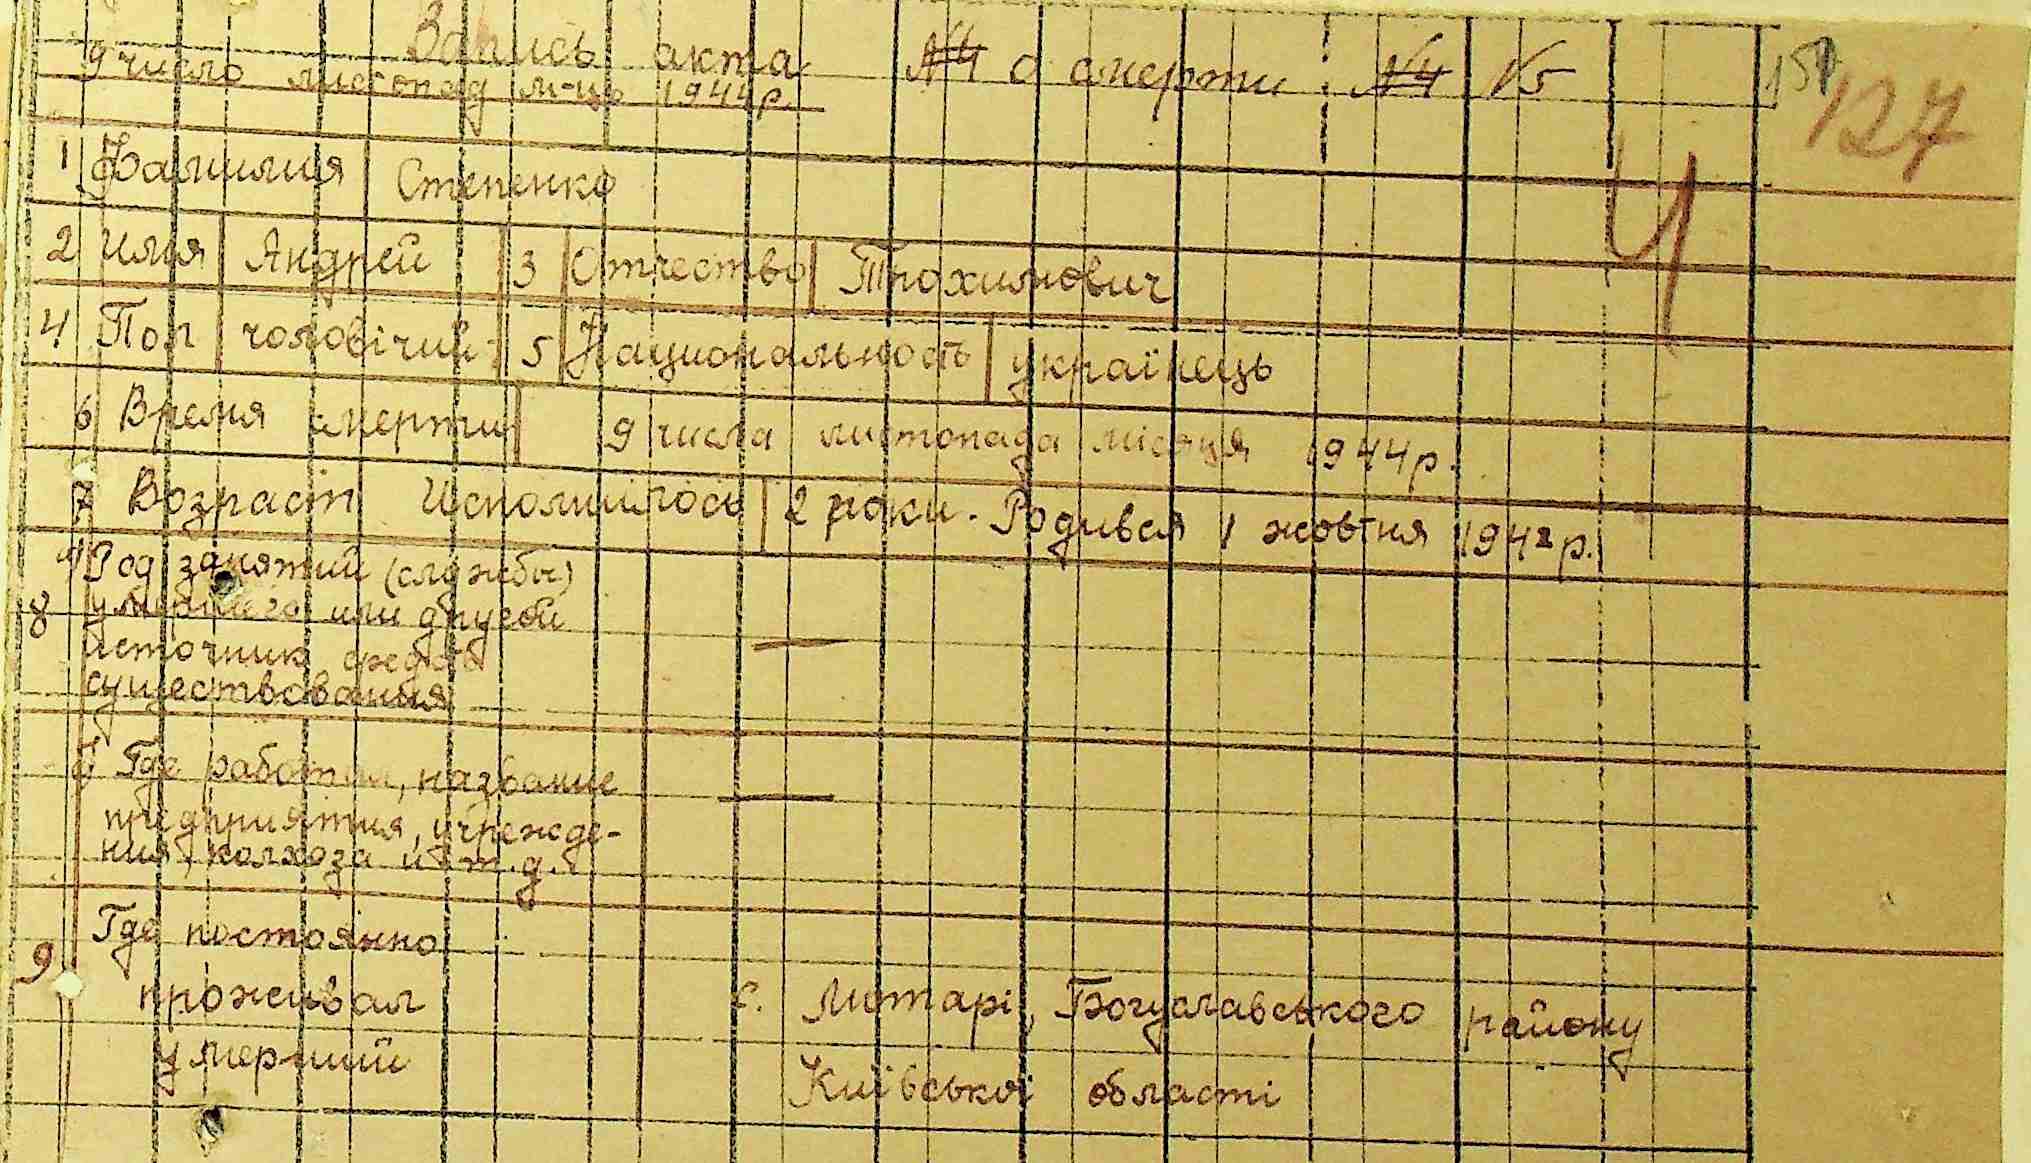 Запись акта №4 о смерти №4 №5
9 число листопад м-ць 1944 р.
127
1 Фамилия Степенко
2 Имя Андрей 3 Отчество Трохимович
4 Пол чоловічий 5 Национальность українець
6 Время смерти 9 числа листопада місяця 1944 р.
7 Возраст Исполнилось 2 роки. Родився 1 жовтня 1942 р.
8 Род занятий (службы)
умершего или другой
источник средств
существования —
Где работал, название —
предприятия, учрежде-
ния, колхоза и т.д.
9 Где постоянно
проживал с. Мотарі, Богуславського району
умерший Київської області